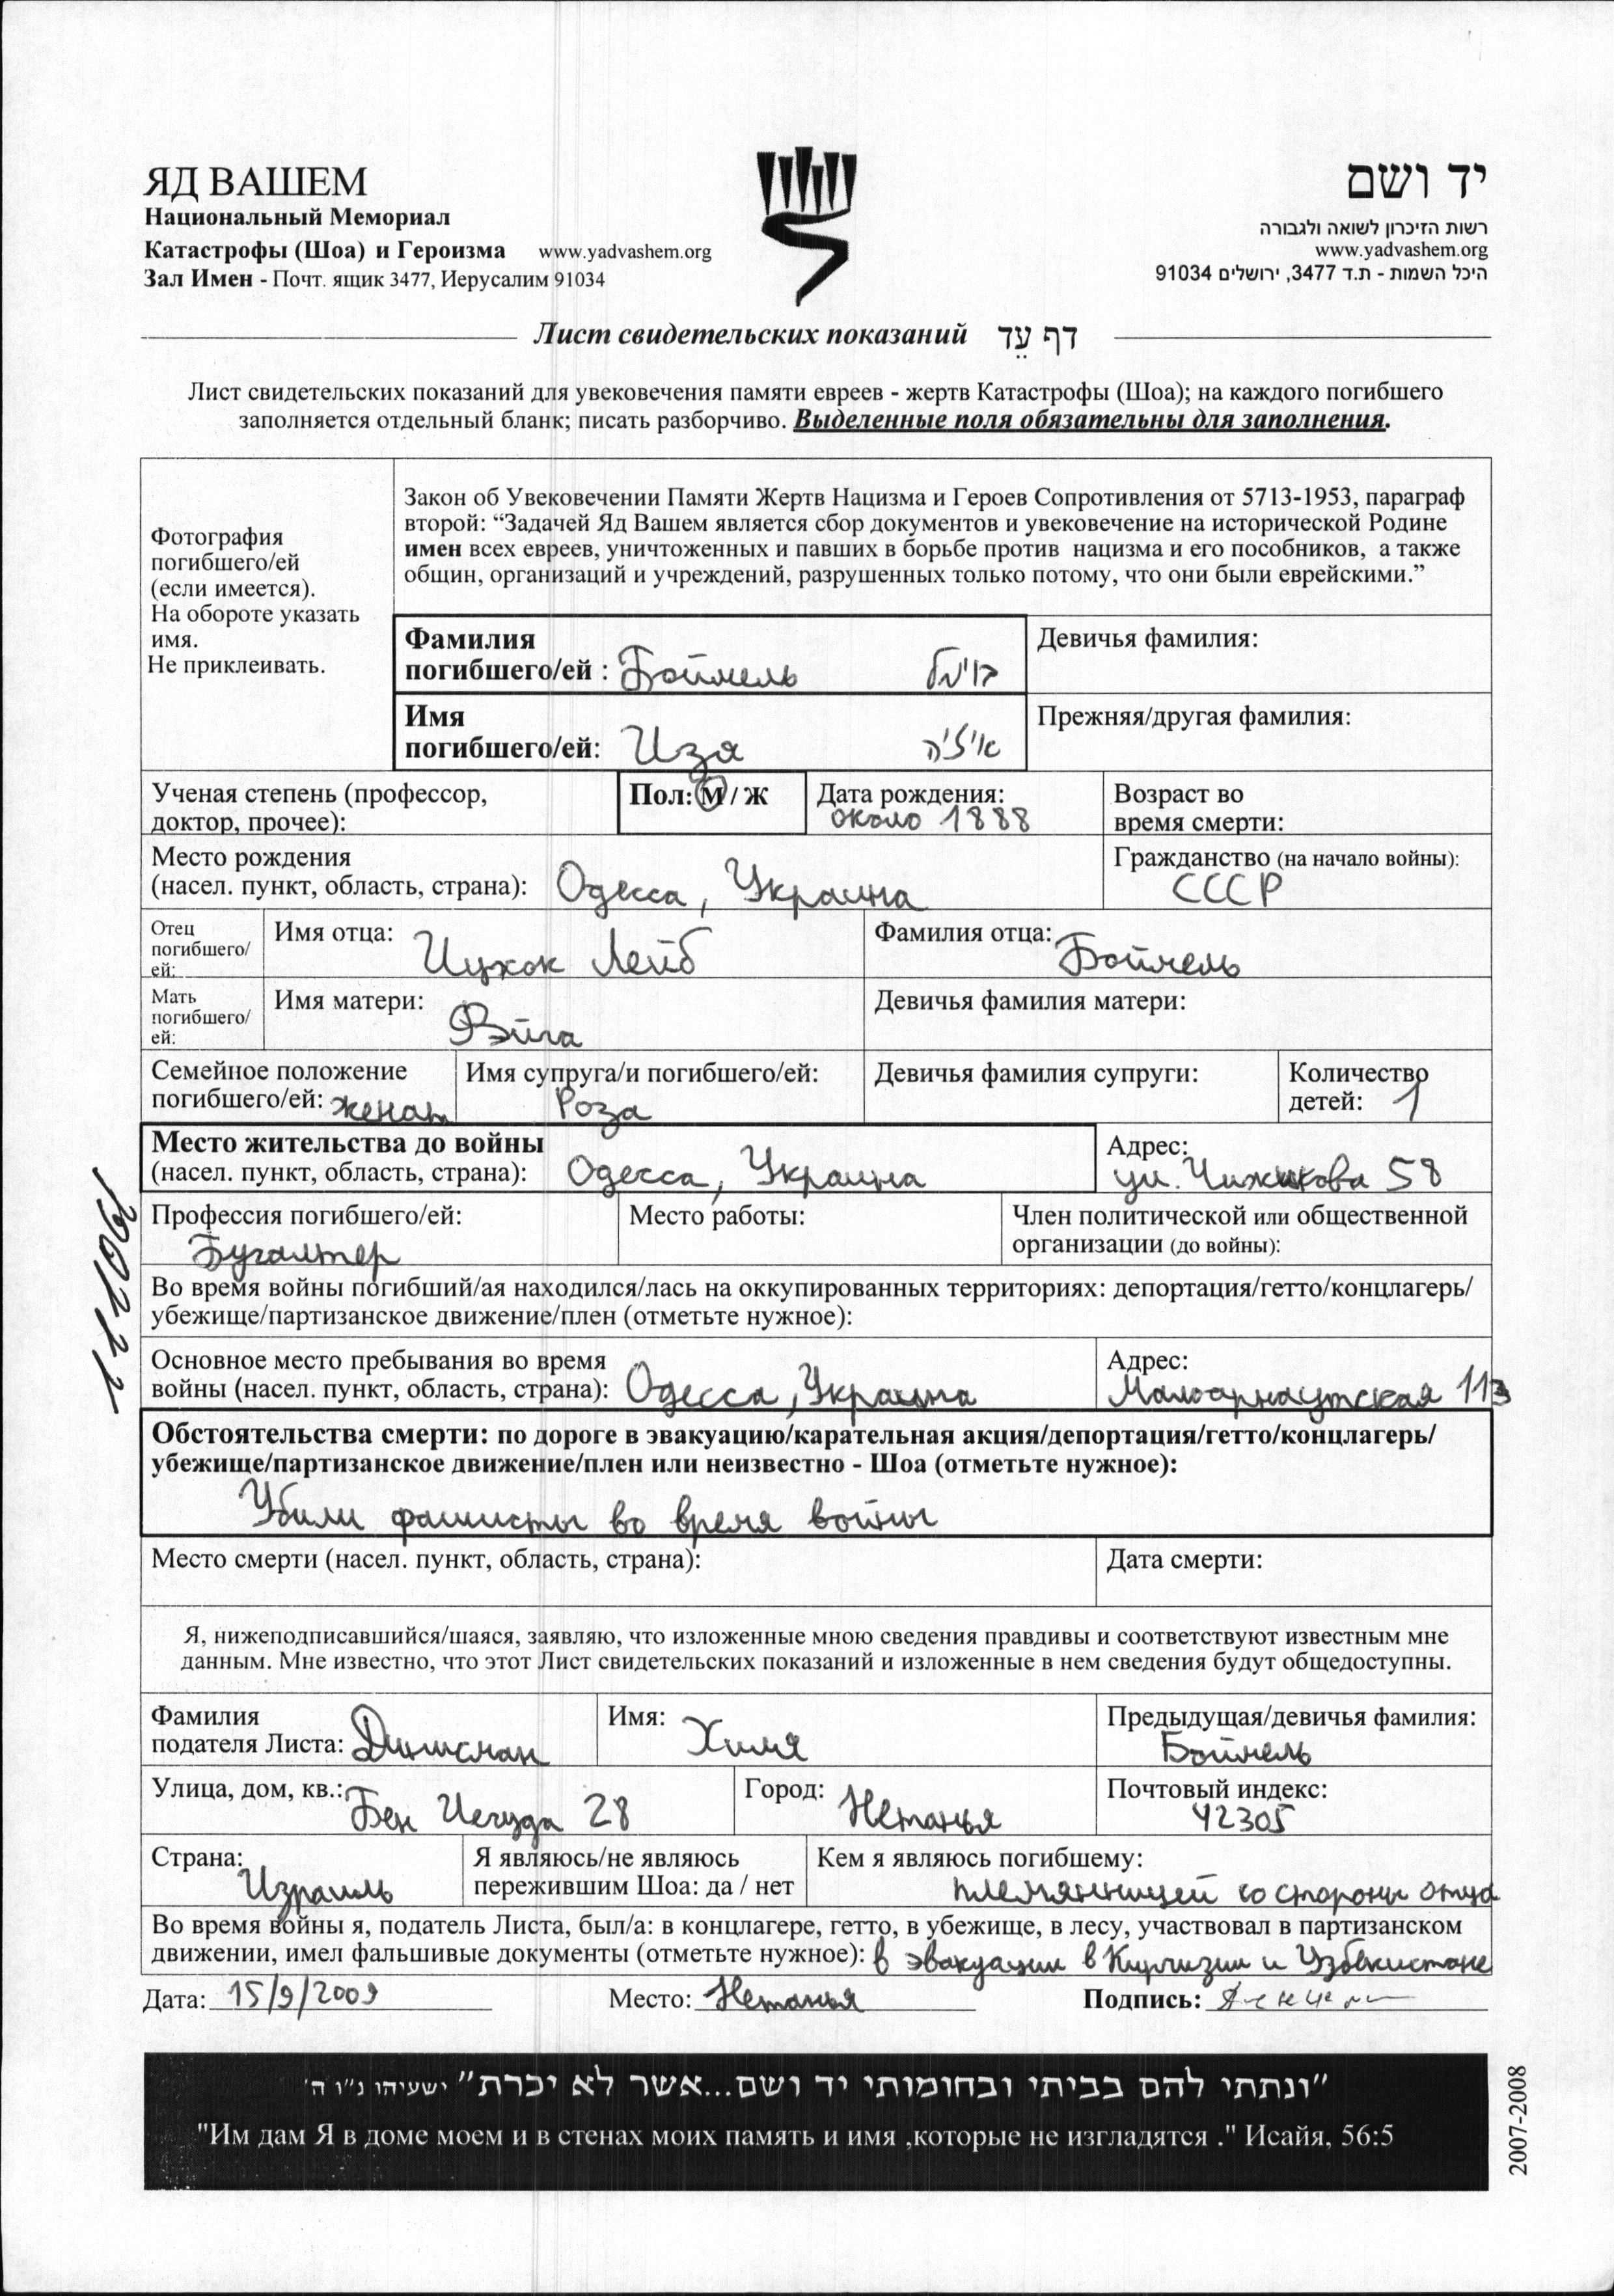 ЯД ВАШЕМ
יד ושם
Национальный Мемориал
Катастрофы (Шоа) и Героизма www.yadvashem.org
Зал Имен - Почт. ящик 3477, Иерусалим 91034
רשות הזיכרון לשואה ולגבורה
www.yadvashem.org
היכל השמות - ת.ד 3477, ירושלים 91034
Лист свидетельских показаний דף עֵד
Лист свидетельских показаний для увековечения памяти евреев - жертв Катастрофы (Шоа); на каждого погибшего
заполняется отдельный бланк; писать разборчиво. Выделенные поля обязательны для заполнения.
Фотография
погибшего/ей
(если имеется).
На обороте указать
имя.
Не приклеивать.
Закон об Увековечении Памяти Жертв Нацизма и Героев Сопротивления от 5713-1953, параграф
второй: “Задачей Яд Вашем является сбор документов и увековечение на исторической Родине
имен всех евреев, уничтоженных и павших в борьбе против нацизма и его пособников, а также
общин, организаций и учреждений, разрушенных только потому, что они были еврейскими.”
Фамилия
погибшего/ей : Боймель בוימל
Девичья фамилия:
Имя
погибшего/ей: Изя איזיה
Прежняя/другая фамилия:
Ученая степень (профессор,
доктор, прочее):
Пол: М / Ж
Дата рождения:
около 1888
Возраст во
время смерти:
Место рождения
(насел. пункт, область, страна): Одесса, Украина
Гражданство (на начало войны):
СССР
Отец
погибшего/
ей:
Имя отца: Ицхок Лейб
Фамилия отца: Боймель
Мать
погибшего/
ей:
Имя матери: Фэйга
Девичья фамилия матери:
Семейное положение
погибшего/ей: женат
Имя супруга/и погибшего/ей:
Роза
Девичья фамилия супруги:
Количество
детей: 1
Место жительства до войны
(насел. пункт, область, страна): Одесса, Украина
Адрес:
ул. Чижикова 58
Профессия погибшего/ей:
Бугалтер
Место работы:
Член политической или общественной
организации (до войны):
Во время войны погибший/ая находился/лась на оккупированных территориях: депортация/гетто/концлагерь/
убежище/партизанское движение/плен (отметьте нужное):
Основное место пребывания во время
войны (насел. пункт, область, страна): Одесса, Украина
Адрес:
Малоарнаутская 113
Обстоятельства смерти: по дороге в эвакуацию/карательная акция/депортация/гетто/концлагерь/
убежище/партизанское движение/плен или неизвестно - Шоа (отметьте нужное):
Убили фашисты во время войны
Место смерти (насел. пункт, область, страна):
Дата смерти:
Я, нижеподписавшийся/шаяся, заявляю, что изложенные мною сведения правдивы и соответствуют известным мне
данным. Мне известно, что этот Лист свидетельских показаний и изложенные в нем сведения будут общедоступны.
Фамилия
подателя Листа:
Имя: Химя
Предыдущая/девичья фамилия:
Боймель
Улица, дом, кв.: Бен Иегуда 28
Город: Нетанья
Почтовый индекс:
42305
Страна:
Израиль
Я являюсь/не являюсь
пережившим Шоа: да / нет
Кем я являюсь погибшему:
племянницей со стороны отца
Во время войны я, податель Листа, был/а: в концлагере, гетто, в убежище, в лесу, участвовал в партизанском
движении, имел фальшивые документы (отметьте нужное): в эвакуации в Киргизии и Узбекистане
Дата: 15/9/2009
Место: Нетанья
Подпись:
"ונתתי להם בביתי ובחומותי יד ושם...אשר לא יכרת" ישעיהו נ"ו ה'
"Им дам Я в доме моем и в стенах моих память и имя ,которые не изгладятся ." Исайя, 56:5
2007-2008